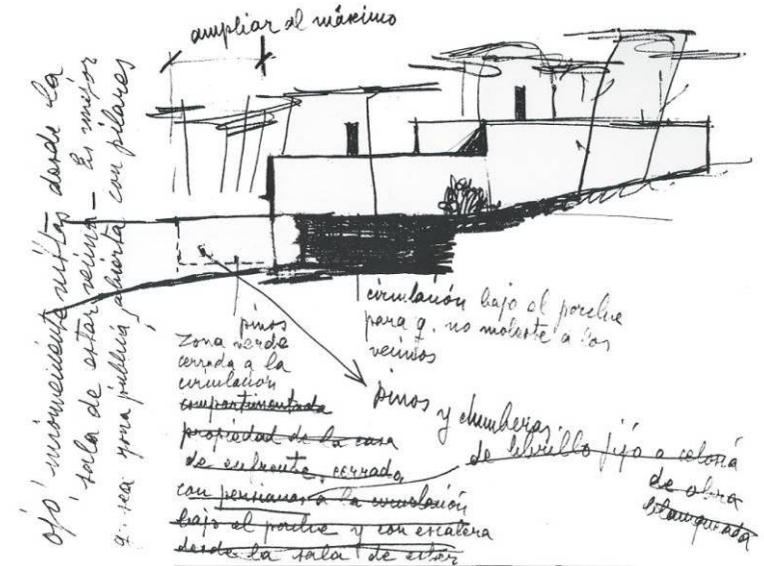 ampliar al máximo
ojo inconveniente vistas desde la
sala de estar vecina — Es mejor
q. sea zona pública, abierta con pilares
circulación bajo el porche
para q. no moleste a los
vecinos
pinos
zona verde
cerrada a la
circulación
compartimentada
propiedad de la casa
de enfrente, cerrada
con persianas a la circulación
bajo el porche y con escalera
desde la sala de estar
pinos y chumberas.
de librillo fijo o celosía
de obra
blanqueada